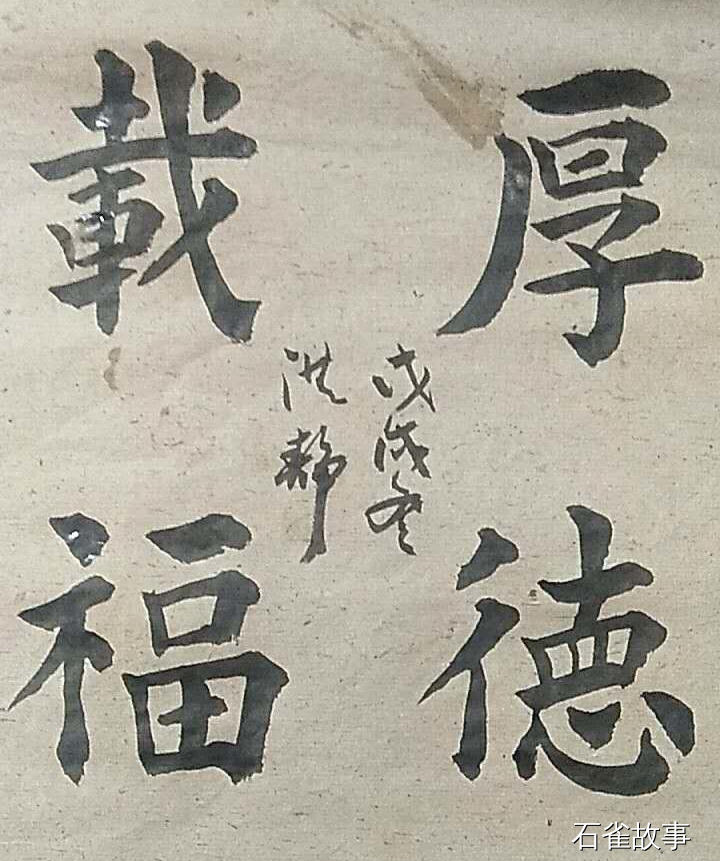 厚德
載福
戊戌冬
洪静
石雀故事